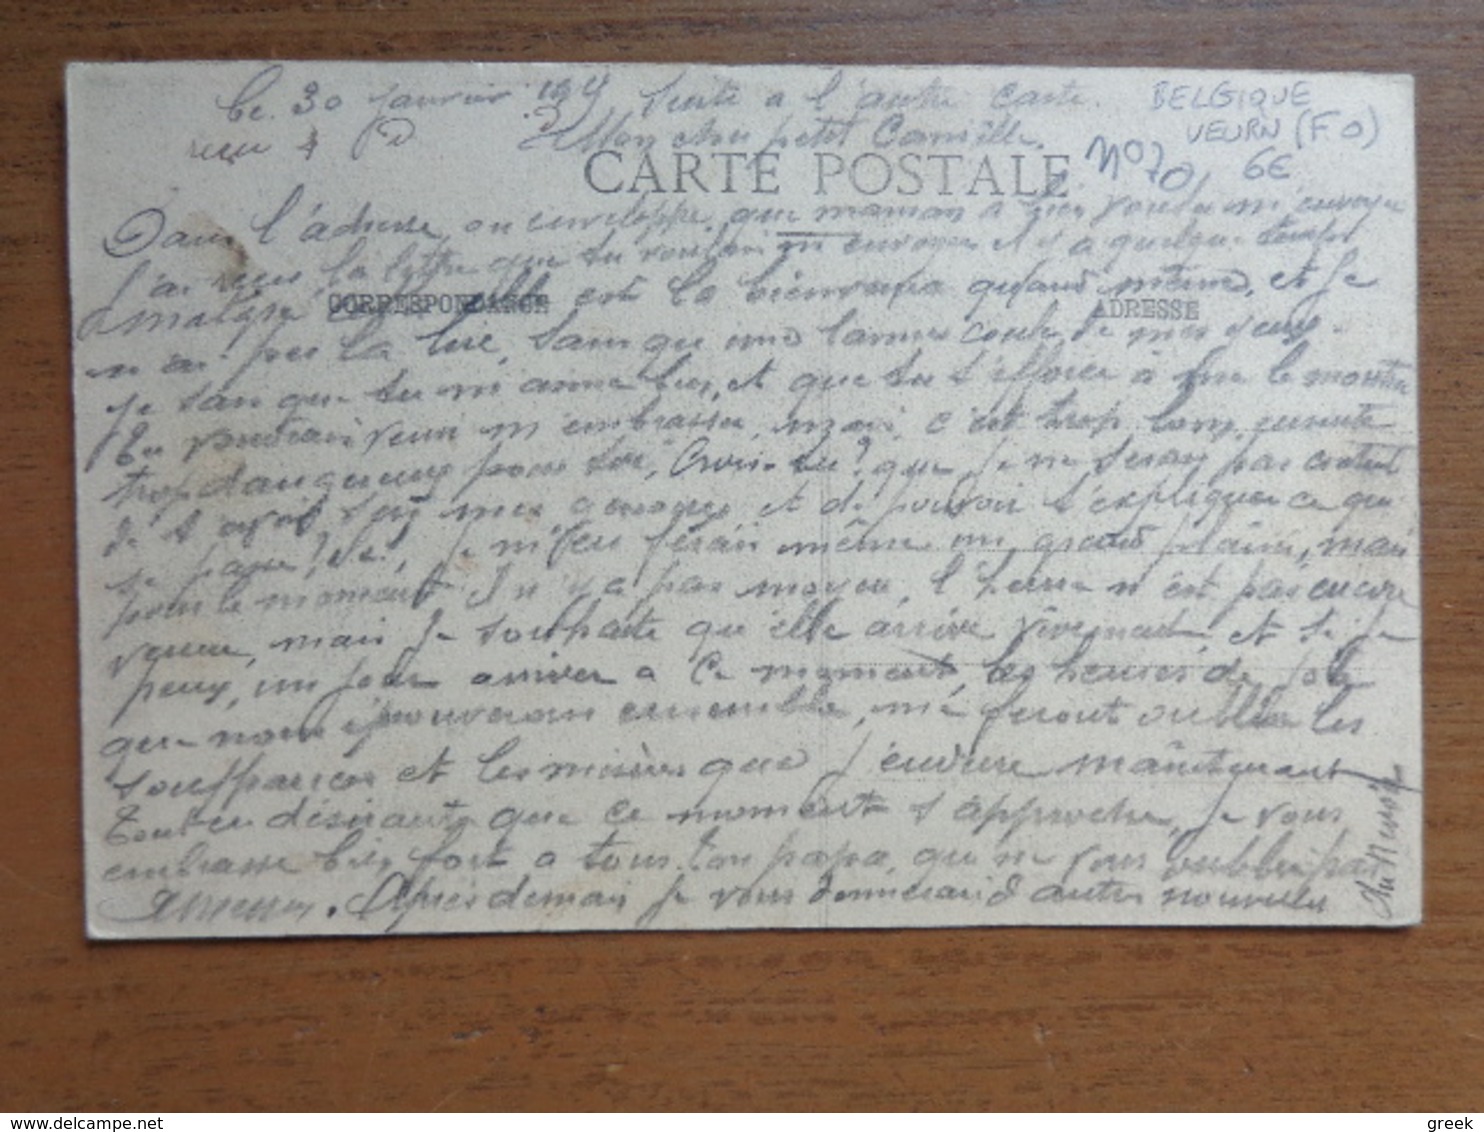 Le 30 janvier 191 Suite a l'autre carte. BELGIQUE
VEURN (FO)
6E
Mon cher petit Camille. N° 70
CARTE POSTALE
Dans l'adresse ou enveloppe que maman a m'envoyer
J'ai reçu la lettre que tu voulais m envoyer il y a quelque temps
malgré est la bienvenu quand même, et je
CORRESPONDANCE ADRESSE
n'ai pu la lire, sans qu une larme coule de mes yeux.
Je sais que tu m aime bien, et que tu t'efforce à me le montrer
Tu voudrais venir m embrasser, mais c'est trop long, ensuite
trop dangereux pour toi, Crois-tu? que je ne serais pas content
de t'avoir sur mes genoux et de pouvoir t'expliquer ce qui
se passe! Si! je m'en ferais même un grand plaisir, mais
pour le moment Il n'y a pas moyen, l'heure n'est pas encore
venue, mais je souhaite qu'elle arrive vivement et si je
peux, un jour arriver a ce moment, les heures de joie
que nous épouveron ensemble, me feront oublier les
souffrances et les misères que j'endure maintenant
Tout en désirant que ce moment s'approche, je vous
embrasse bien fort a tous. Ton papa, qui ne vous oubli pas
Après demain je vous donnerai d autres nouvelles
greek